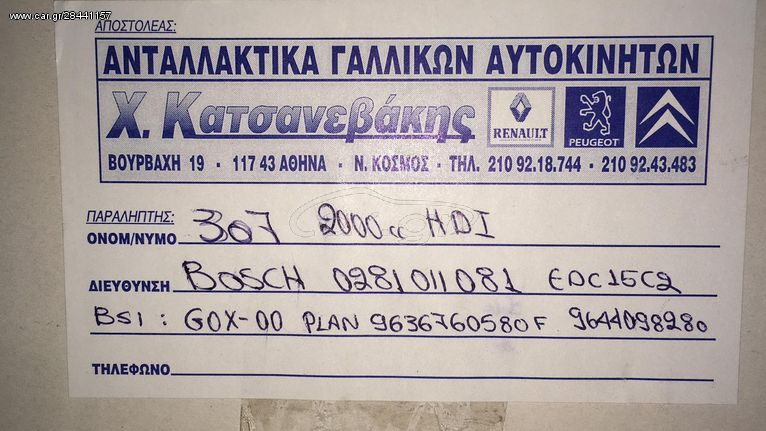 www.car.gr/28441157
ΑΠΟΣΤΟΛΕΑΣ:
ΑΝΤΑΛΛΑΚΤΙΚΑ ΓΑΛΛΙΚΩΝ ΑΥΤΟΚΙΝΗΤΩΝ
Χ. Κατσανεβάκης
RENAULT PEUGEOT
ΒΟΥΡΒΑΧΗ 19 - 117 43 ΑΘΗΝΑ - Ν. ΚΟΣΜΟΣ - ΤΗΛ. 210 92.18.744 - 210 92.43.483
ΠΑΡΑΛΗΠΤΗΣ:
ΟΝΟΜ/ΝΥΜΟ 307 2000cc HDI
ΔΙΕΥΘΥΝΣΗ BOSCH 0281011081 EDC15C2
BSI : GOX-00 PLAN 9636760580F 9644098280
ΤΗΛΕΦΩΝΟ